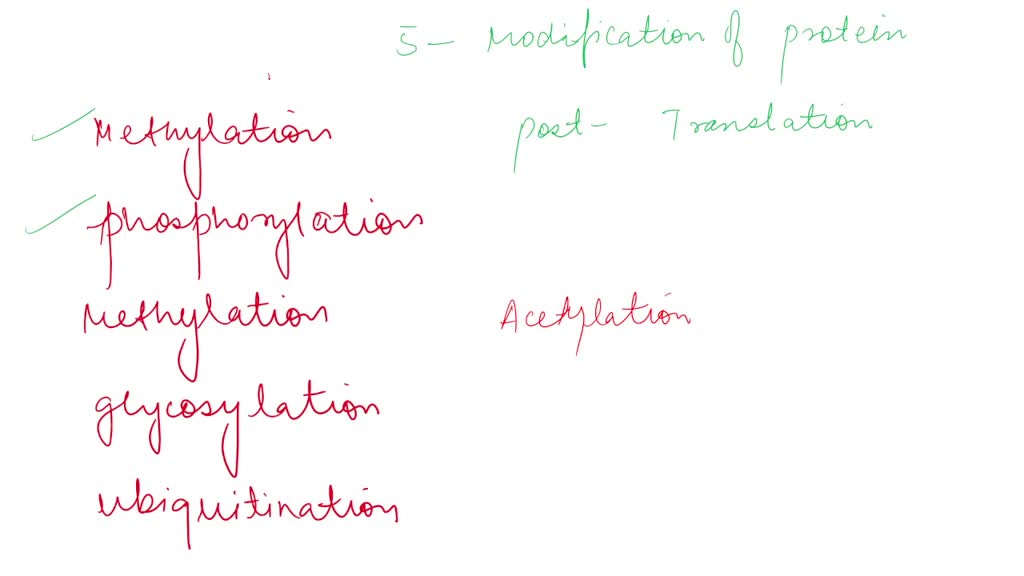 5- Modification of protein
Methylation
post- Translation
phosphorylation
Methylation
Acetylation
glycosylation
ubiquitination